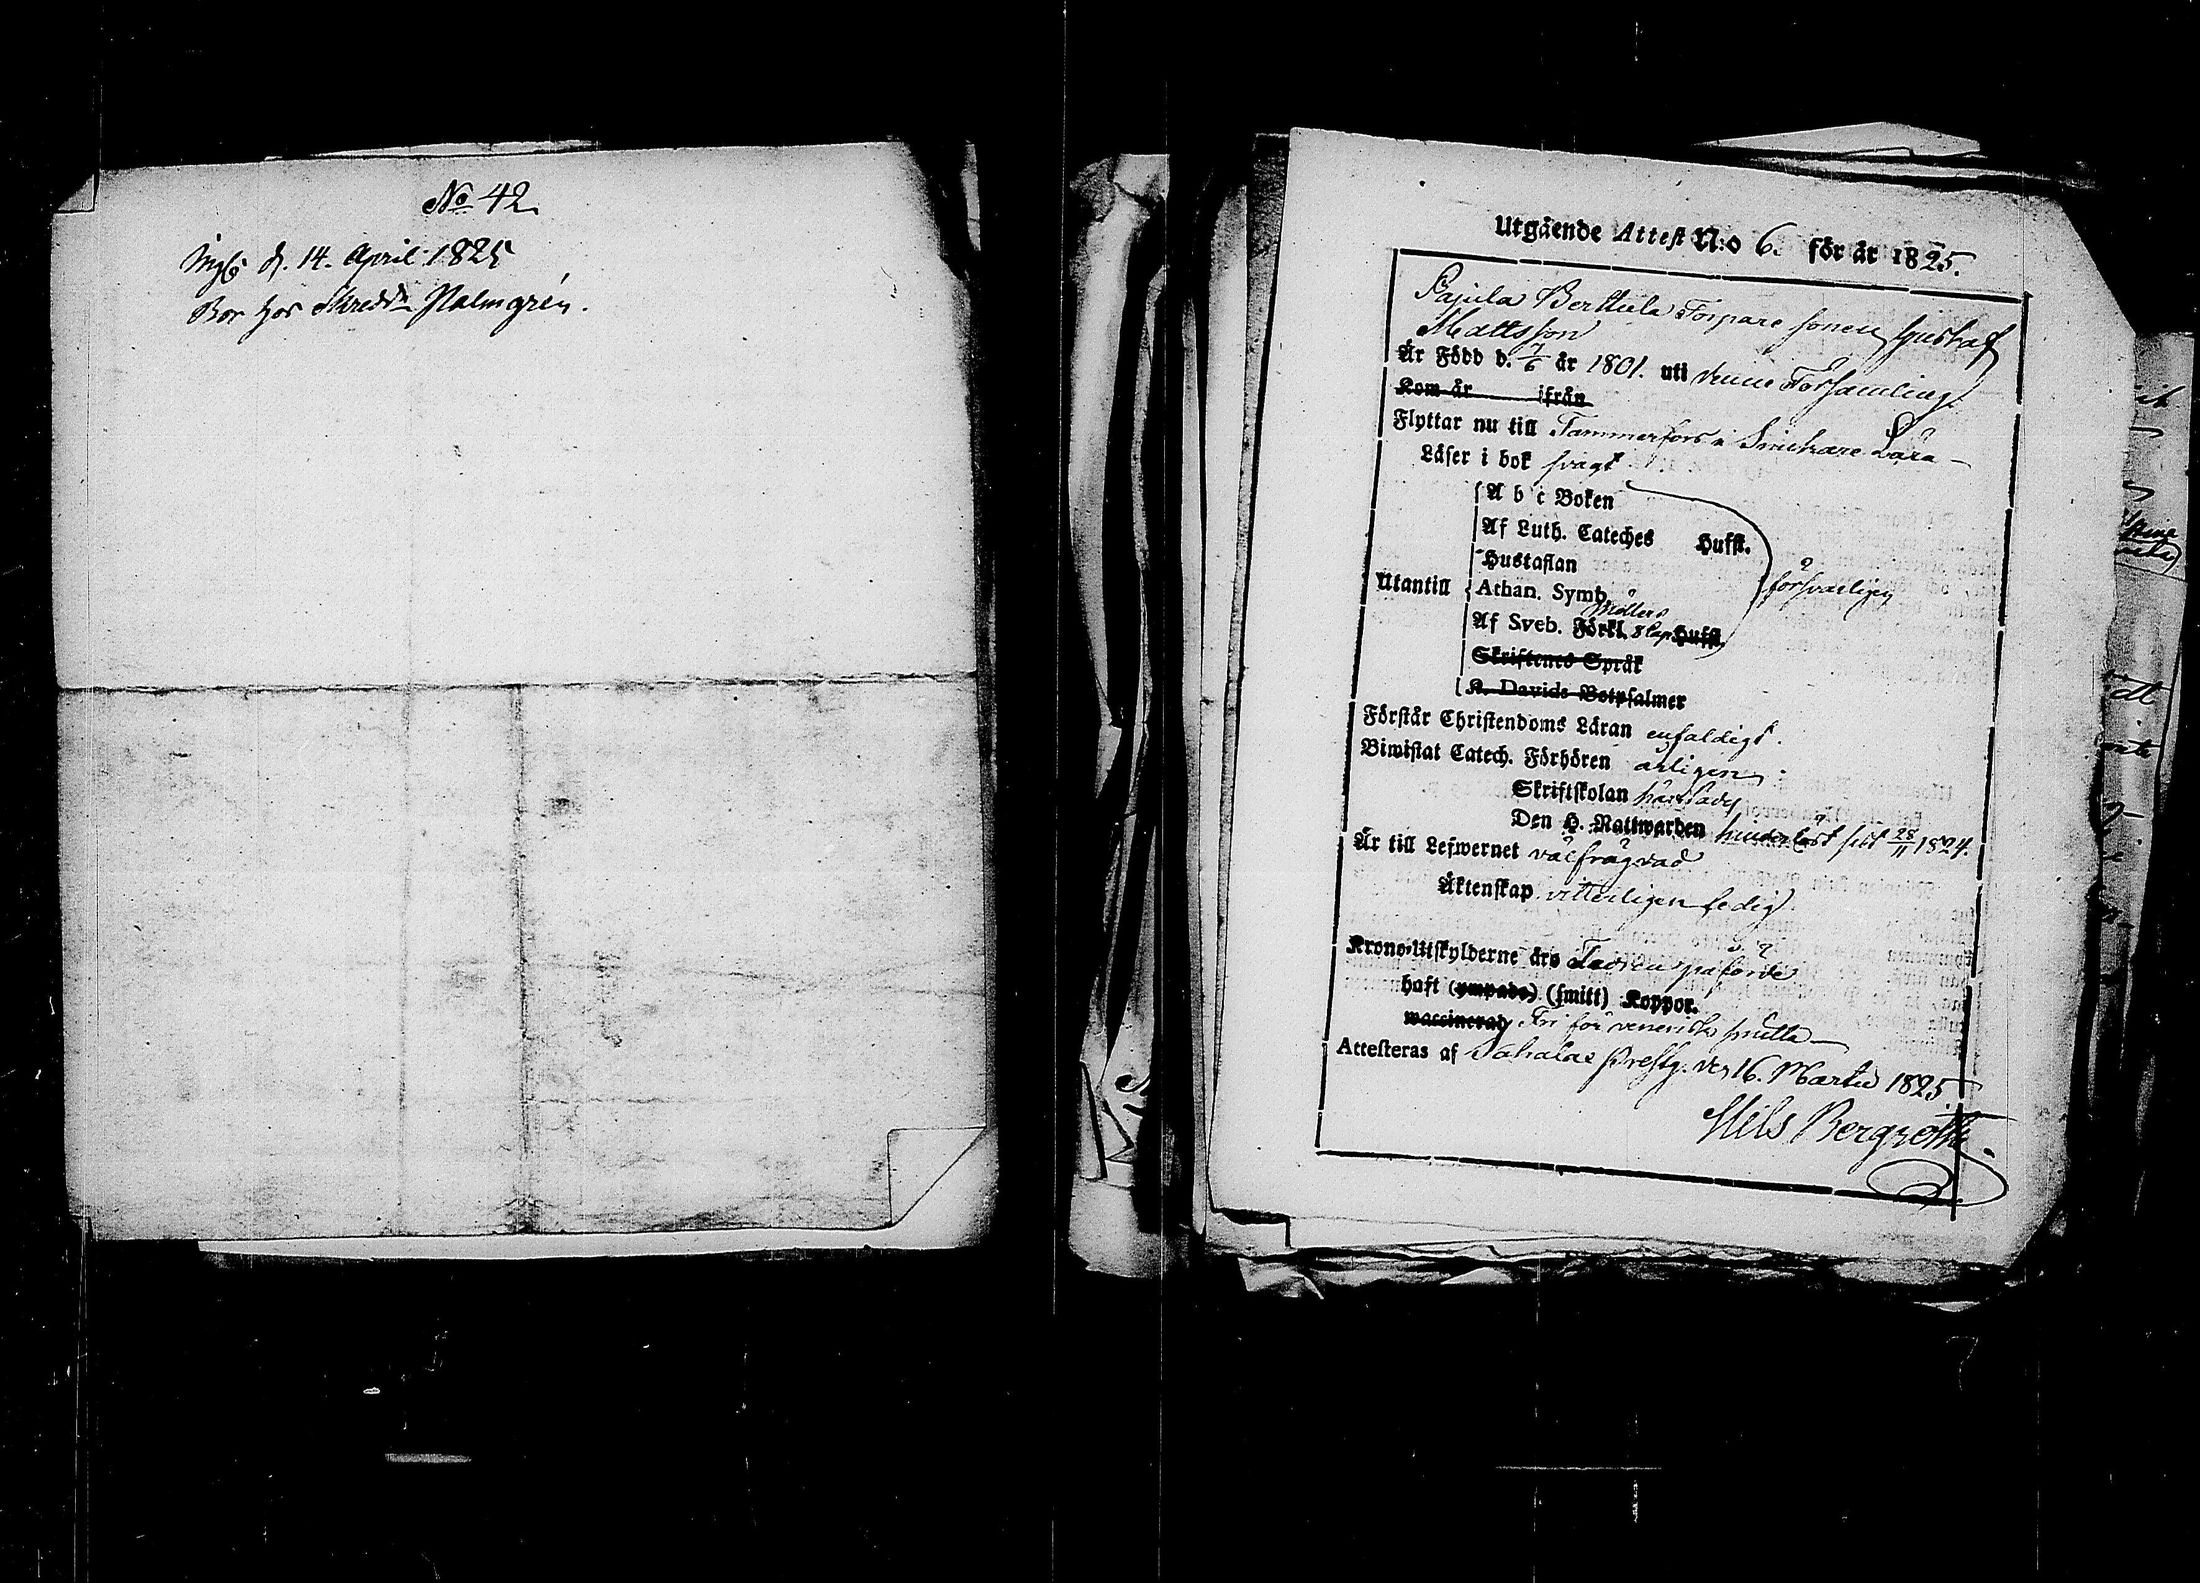 No 42.
Ingf d. 14. April 1825
Bor hos Skredd. Palmgrén.
Utgående Attest N:o 6. för år 1825.
Pajula Berttula Torpare sonen Gustaf
Mattsson
Är Född d. 7/6 år 1801. uti denne Församling
Kom år ifrån
Flyttar nu till Tammerfors i Snickare Lära
Läser i bok svagt
A b c Boken
Af Luth. Cateches Hufst.
Hustaflan
Utantill Athan. Symb. försvarligen
Möllers
Af Sveb. Förkl. 8 Cap Hufst.
Skriftenes Språk
K. Davids Botpsalmer
Förstår Christendoms Läran enfaldigt.
Biwistat Catech. Förhören årligen
Skriftskolan härstädes
Den H. Nattwarden sist 28/11 1824.
Är till Lefwernet välfrägdad
Äktenskap vitterligen ledig
Krono-Utskylderne äro Fadren påförde
haft (ympade) (smitt) Koppor.
waccinerad Fri för venerisk smitta
Attesteras af Sahalax Prestg. den 16. Martii 1825
Nils Bergroth.